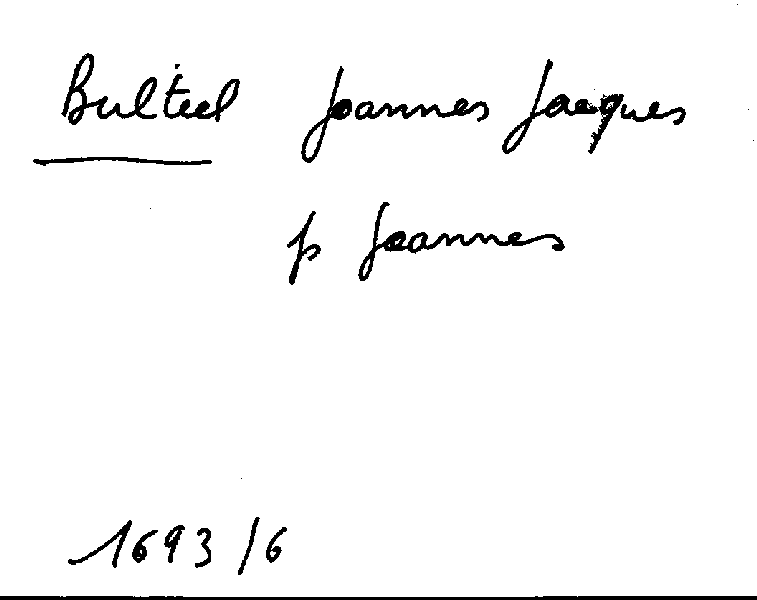 Bulteel Joannes Jacques
fs Joannes
1693/6